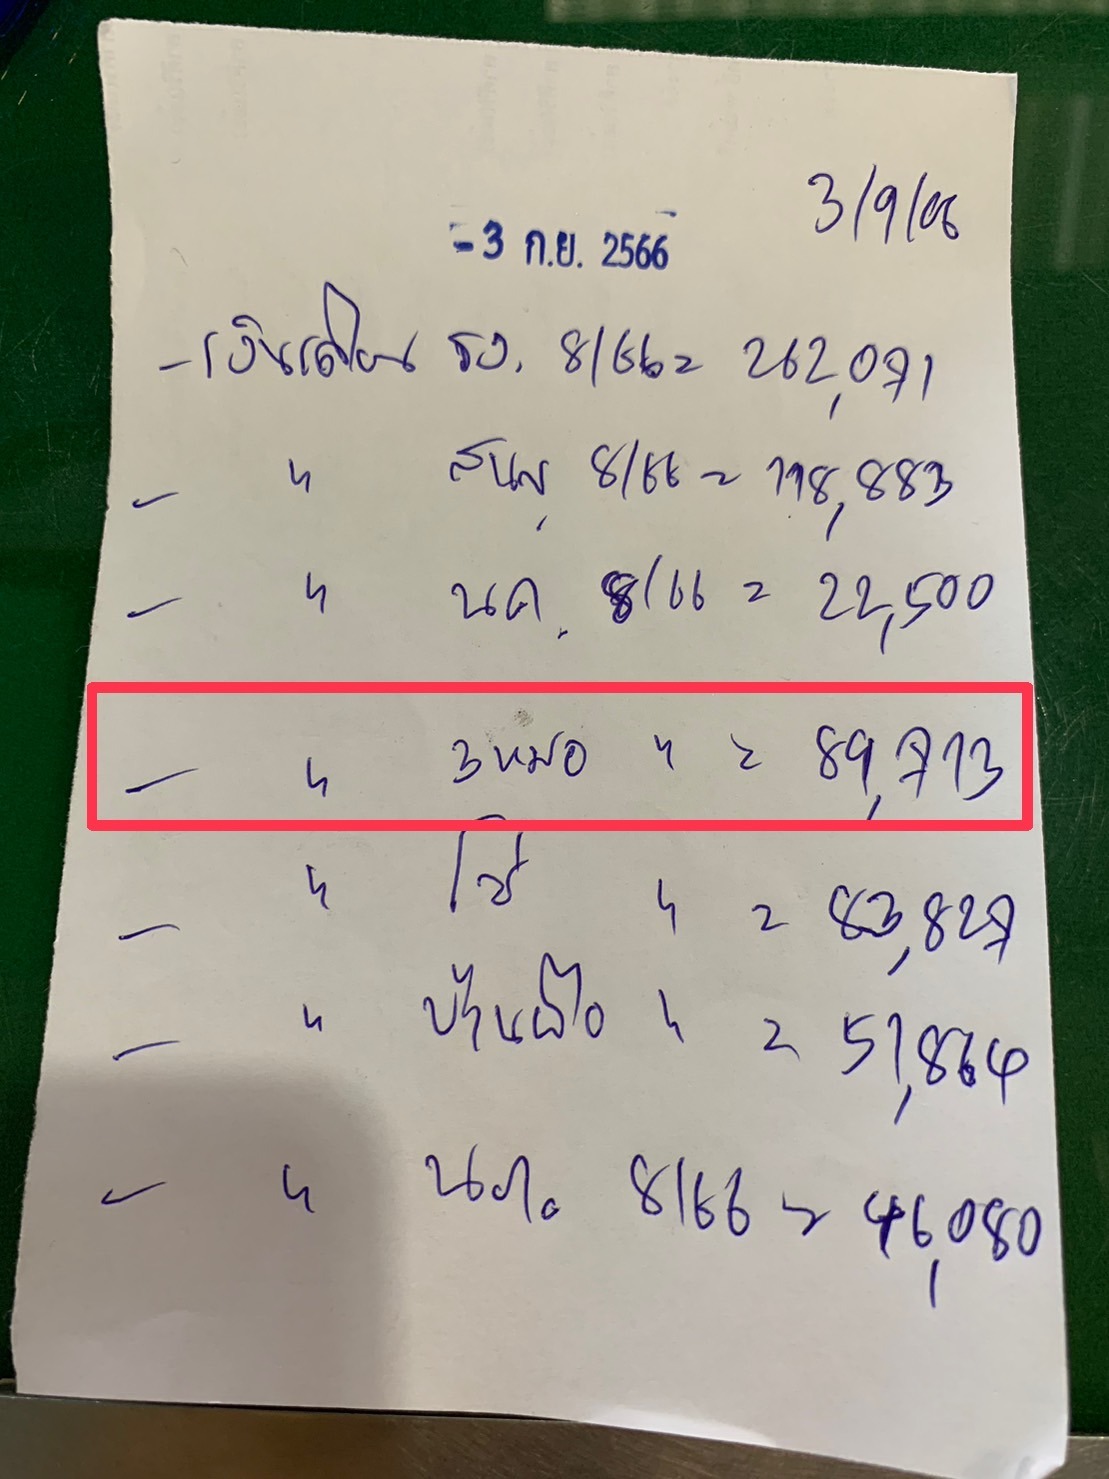 3/9/66
-3 ก.ย. 2566
- เงินเดือน รง. 8/66 = 262,071
- " สนญ. 8/66 = 118,883
- " นค. 8/66 = 22,500
- " 3หมอ " = 89,713
- " โช่ " = 83,827
- " " = 51,864
- " 8/66 = 46,080